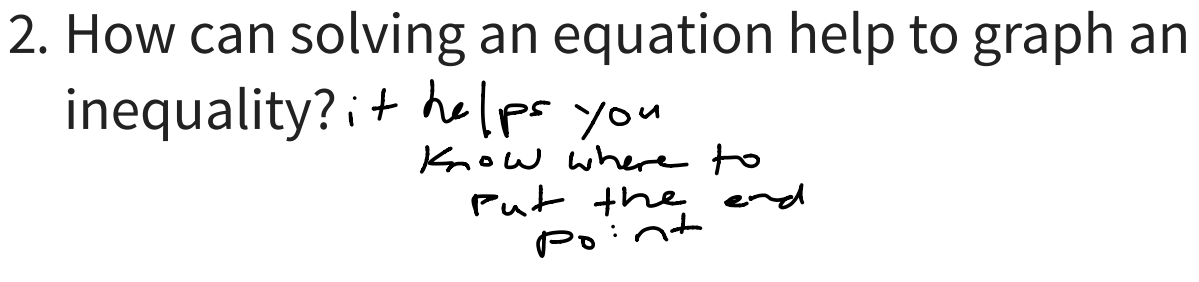 2. How can solving an equation help to graph an
inequality? it helps you
know where to
put the end
point